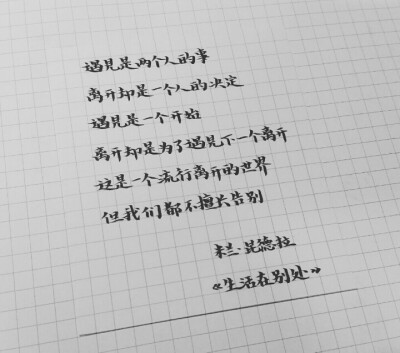 遇见是两个人的事
离开却是一个人的决定
遇见是一个开始
离开却是为了遇见下一个离开
这是一个流行离开的世界
但我们都不擅长告别
米兰·昆德拉
《生活在别处》